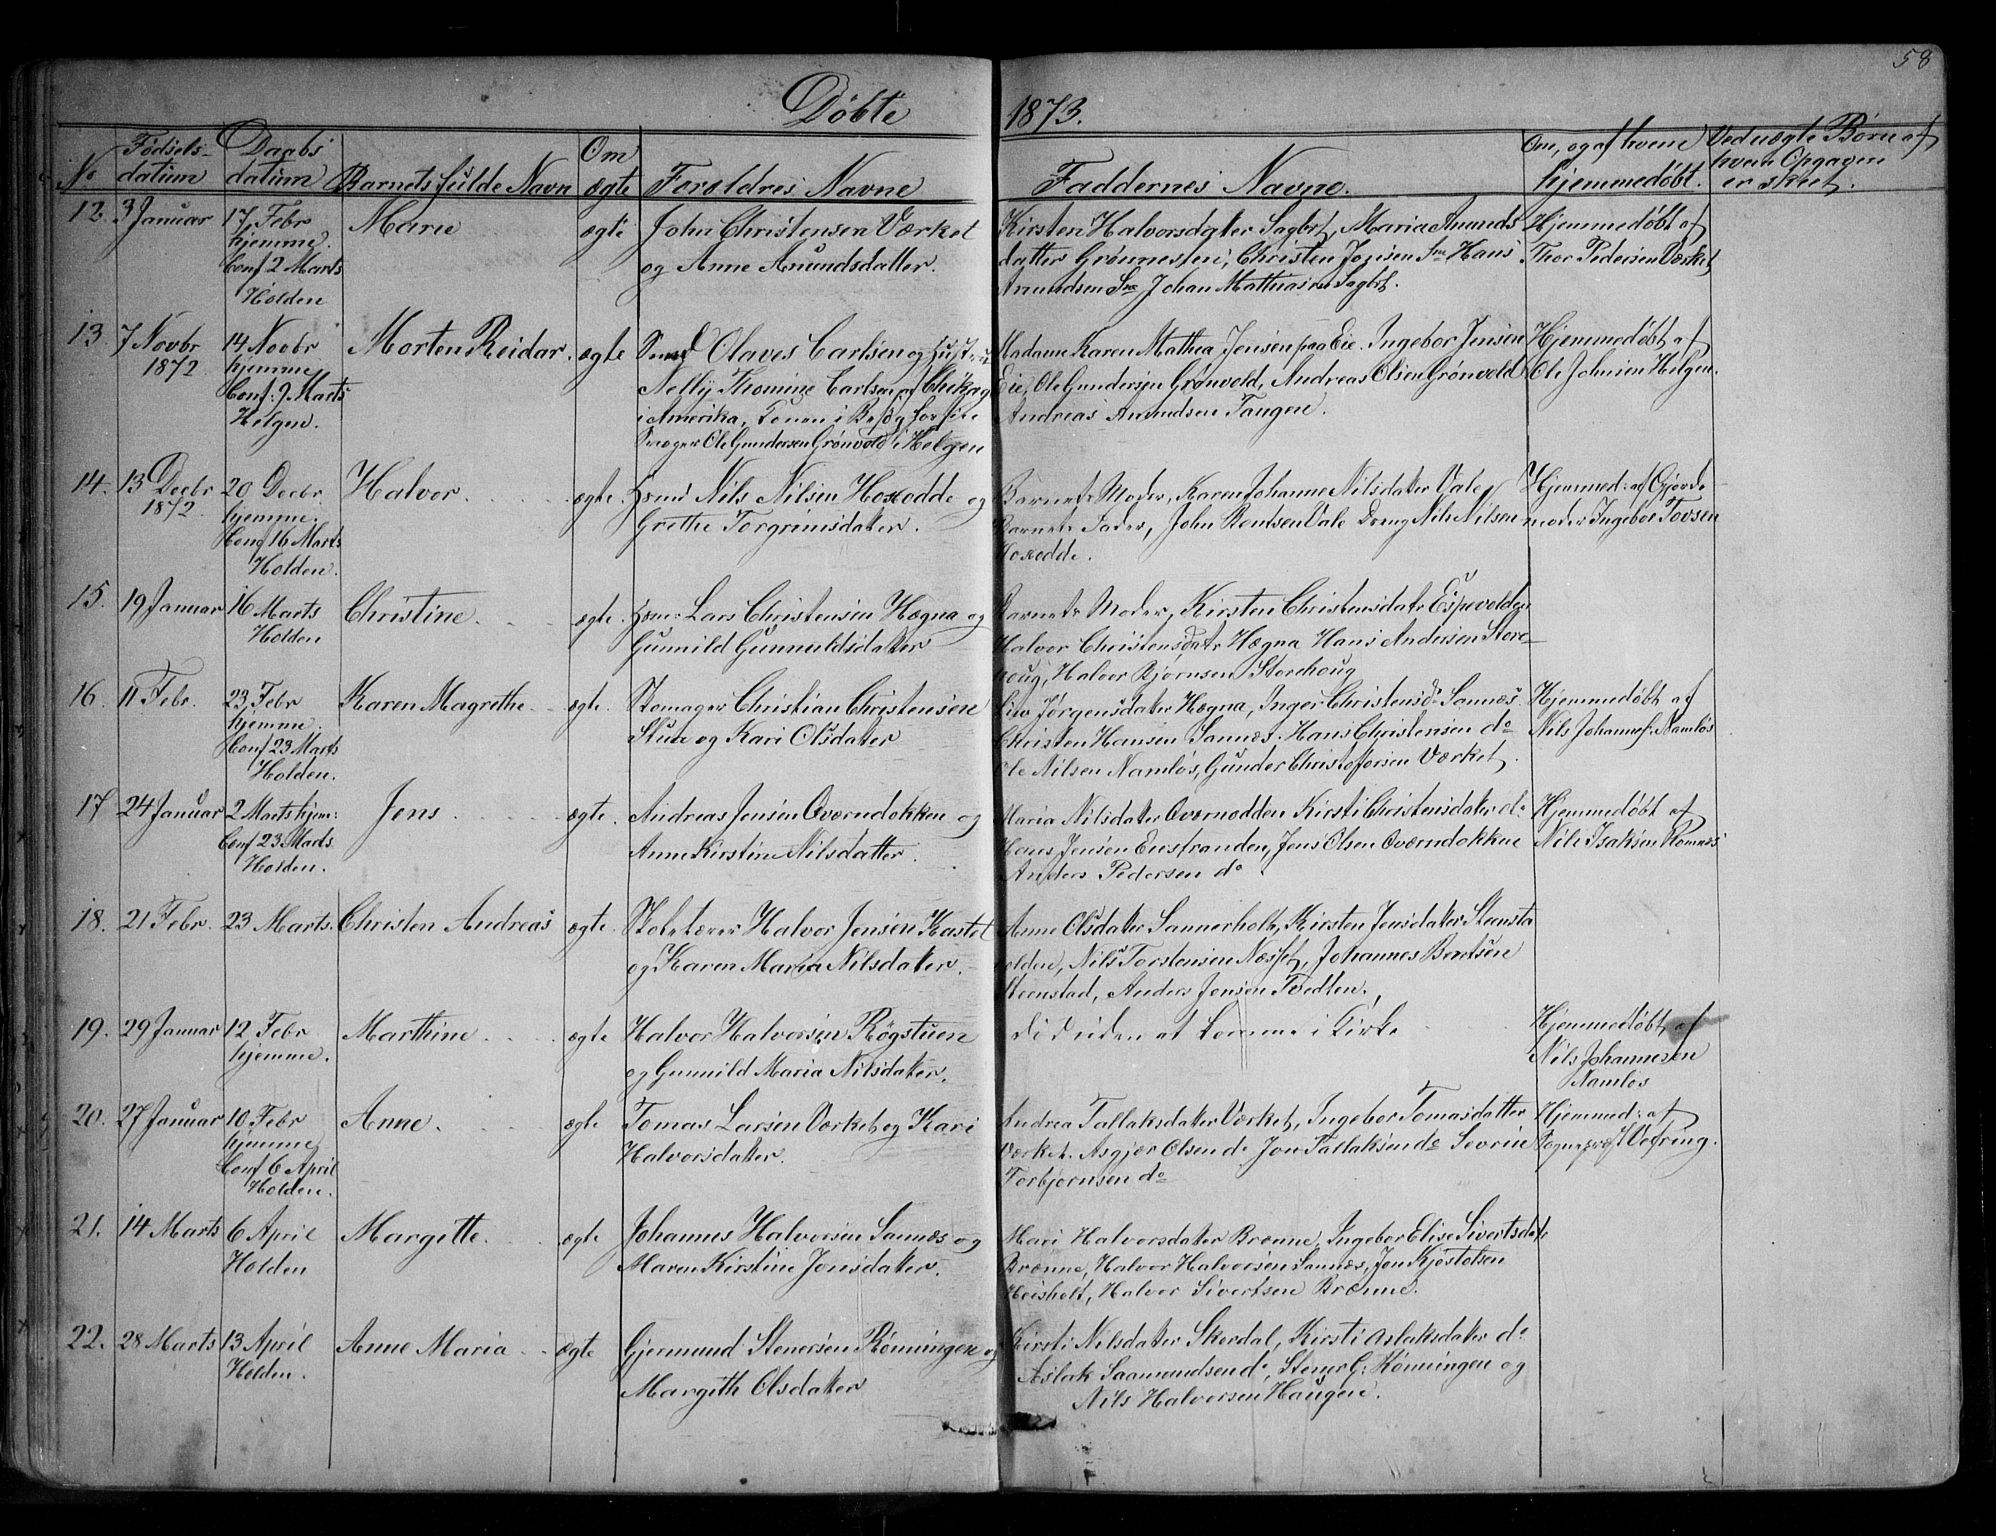 58
Døbte 1873.
No
Fødsels-
datum
Daabs
datum
Barnets fulde Navn
Om
ægte
Foroldres Navne
Faddernes Navne.
Om, og af hvem
hjemmedøbt.
Ved uægte Børn af
hvem Opgaven
er skeet.
12. 3 Januar
17 Febr
hjemme.
Conf 2 Marts
Holden
Marie
ægte
John Christensen Værket
og Anne Anundsdatter.
Kirsten Halvorsdater Sagbr, Maria Anunds
datter Grønnesten, Christen Jonsen Sne Hans
Anundsen Sne Johan Mathiasen Sagbr.
Hjemmedøbt af
Thor Pedersen Værket
13. 7 Novbr
1872
14 Novbr
hjemme
Conf: 2 Marts
Helgen.
Morten Reidar.
ægte
Smed Olaves Carlsen og Hustru
Nelly Thomine Carlsen af Chikago
i Amerika, i Besøg hos
Svoger Ole Gundersen Grønvold i Helgen
Madame Karen Mathea Jensen paa Eie. Ingebor Jensen
Eie, Ole Gundersen Grønvold, Andreas Olsen Grønvold
Andreas Amundsen Tangen.
Hjemmedøbt af
Ole Johnsen Helgen.
14. 13 Decbr
1872.
20 Decbr
hjemme.
Conf 16 Marts
Holden.
Halvor.
ægte.
Nils Nilsen Hoxodde og
Grethe Torgrimsdater.
Barnets Moder, Karen Johanne Nilsdater Vale
Barnets Fader, John Rentsen Vale Dreng Nils Nilsen
Hoxodde.
Hjemmed: af Gjorde
moder Ingebor Tovsen
15. 19 Januar
16 Marts
Holden
Christine.
ægte.
Lars Christensen Hægna og
Gunnild Gunnuldsdater
Barnets Moder, Kirsten Christensdatr Espevolden
Halvor Christensdatr Hægna Hans Andersen Store-
houg, Halvor Bjørnsen Storehoug
16. 11 Febr.
23 Febr
hjemme.
Conf 23 Marts
Holden.
Karen Magrethe
ægte.
Skomager Christian Christensen
Stuen og Kari Olsdater
Siw Jørgensdater Hægna, Inger Christensdr Sannæs
Christen Hansen Sannæs. Hans Christensen do
Ole Nilsen Namløs, Gunder Christofersen Værket.
Hjemmedøbt af
Nils Johannes. Namløs
17. 24 Januar
2 Marts hjem:
Conf 23 Marts
Holden.
Jens.
ægte.
Andreas Jensen Overndokken og
Anne Kirstine Nilsdatter.
Maria Nilsdater Overnodden Kirsti Christensdater do
Hans Jensen Ensstranden, Jens Olsen Overndokken
Anders Pedersen do
Hjemmedøbt af
Nils Isaksen Romnes
18. 21 Febr.
23 Marts.
Christen Andreas
ægte.
Skolelærer Halvor Jensen Kastet
og Karen Maria Nilsdater.
Anne Olsdater Sannerholt, Kirsten Jensdater Steensta
holden, Nils Torstensen Næsset, Johannes Bentsen
Steenstad, Anders Jensen Tvedten.
19. 29 Januar
12 Febr
hjemme.
Marthine
ægte
Halvor Halvorsen Røgstuen
og Gunnild Maria Nilsdater.
Død uden at komme i Kirke
Hjemmedøbt af
Nils Johannesen
Namløs
20. 27 Januar
10 Febr
hjemme
Conf 6 April
Holden.
Anne.
ægte
Tomas Larsen Værket og Kari
Halvorsdater.
Andrea Tallaksdater Værket, Ingebor Tomasdatter
Værket. Asgjær Olsen do Jon Tallaksen do Sevrin
Torbjørnsen do
Hjemmed: af
Sognepræst Vefring.
21. 14 Marts
6 April
Holden
Margitte.
ægte
Johannes Halvorsen Sannæs og
Maren Kirstine Jensdater.
Mari Halvorsdater Brænne, Ingebor Elise Sivertsdatr
Brænne, Halvor Halvorsen Sannæs, Jon Kjøstolsen
Heisholt, Halvor Sivertsen Brænne.
22. 28 Marts
13 April
Holden.
Anne Maria
ægte
Gjermund Stenersen Rønningen og
Margith Olsdater
Kirsti Nilsdater Skerdal, Kirsti Aslaksdater do
Aslak Saamundsen do, Stener G: Rønningen og
Nils Halvorsen Haugen.